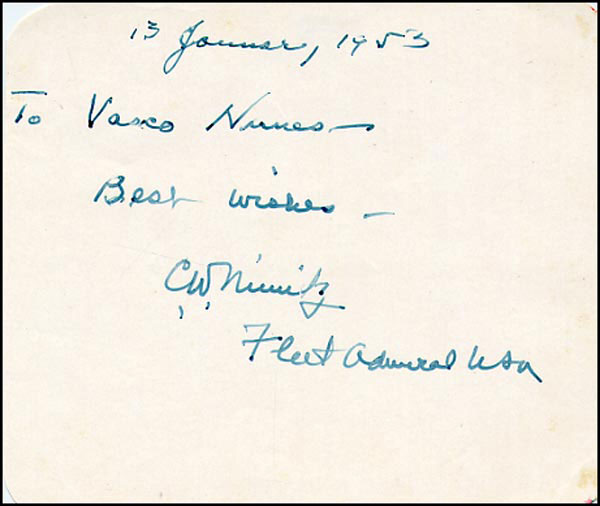 13 January, 1953
To Vasco Nunes –
Best wishes –
C.W. Nimitz
Fleet Admiral USN